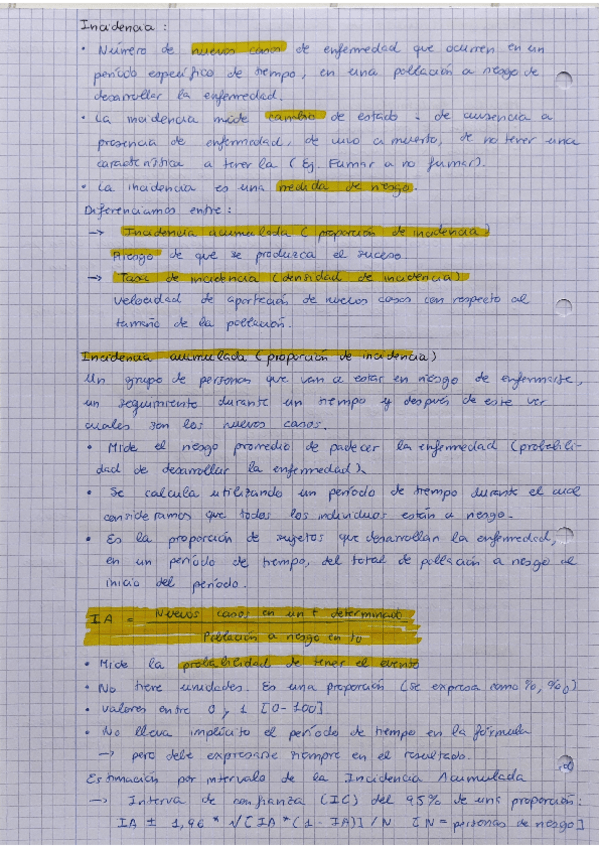 Incidencia :
• Número de nuevos casos de enfermedad que ocurren en un
período específico de tiempo, en una población a riesgo de
desarrollar la enfermedad.
• La incidencia mide cambio de estado - de ausencia a
presencia de enfermedad, de vivo a muerto, de no tener una
característica a tenerla (Ej. Fumar a no fumar).
• La incidencia es una medida de riesgo.
Diferenciamos entre :
→ Incidencia acumulada (proporción de incidencia)
Riesgo de que se produzca el suceso.
→ Tasa de incidencia (densidad de incidencia)
Velocidad de aparición de nuevos casos con respecto al
tamaño de la población.
Incidencia acumulada (proporción de incidencia)
Un grupo de personas que van a estar en riesgo de enfermarse,
un seguimiento durante un tiempo y después de este ver
cuales son los nuevos casos.
• Mide el riesgo promedio de padecer la enfermedad (probabili-
dad de desarrollar la enfermedad).
• Se calcula utilizando un período de tiempo durante el cual
consideramos que todos los individuos están a riesgo.
• Es la proporción de sujetos que desarrollan la enfermedad,
en un período de tiempo, del total de población a riesgo al
inicio del período.
IA = Nuevos casos en un t determinado
Población a riesgo en t0
• Mide la probabilidad de tener el evento
• No tiene unidades. Es una proporción (se expresa como %, ‰)
• Valores entre 0 y 1 [0-100].
• No lleva implícito el período de tiempo en la fórmula
→ pero debe expresarse siempre en el resultado.
Estimación por intervalo de la Incidencia Acumulada
→ Interva de confianza (IC) del 95% de una proporción:
IA ± 1,96 * √[IA * (1 - IA)] / N [N = personas de riesgo]